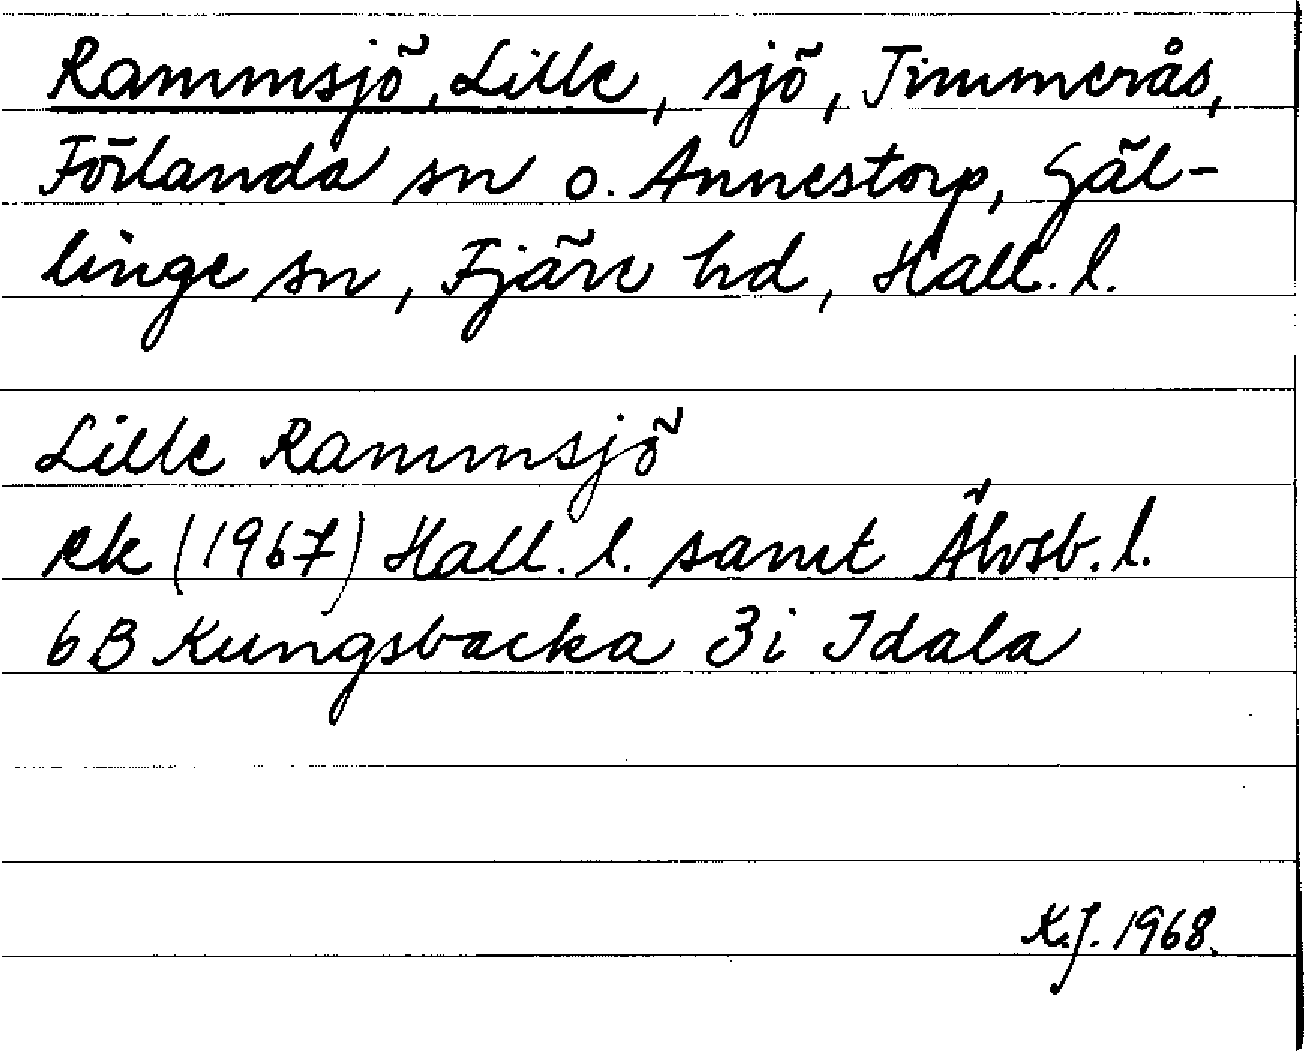 Rammsjö, Lille, sjö, Timmerås,
Förlanda sn o. Annestorp, Gäl-
linge sn, Fjäre hd, Hall. l.
Lille Rammsjö
ek (1967) Hall. l. samt Älvsb. l.
6B Kungsbacka 3i Idala
K.J. 1968.